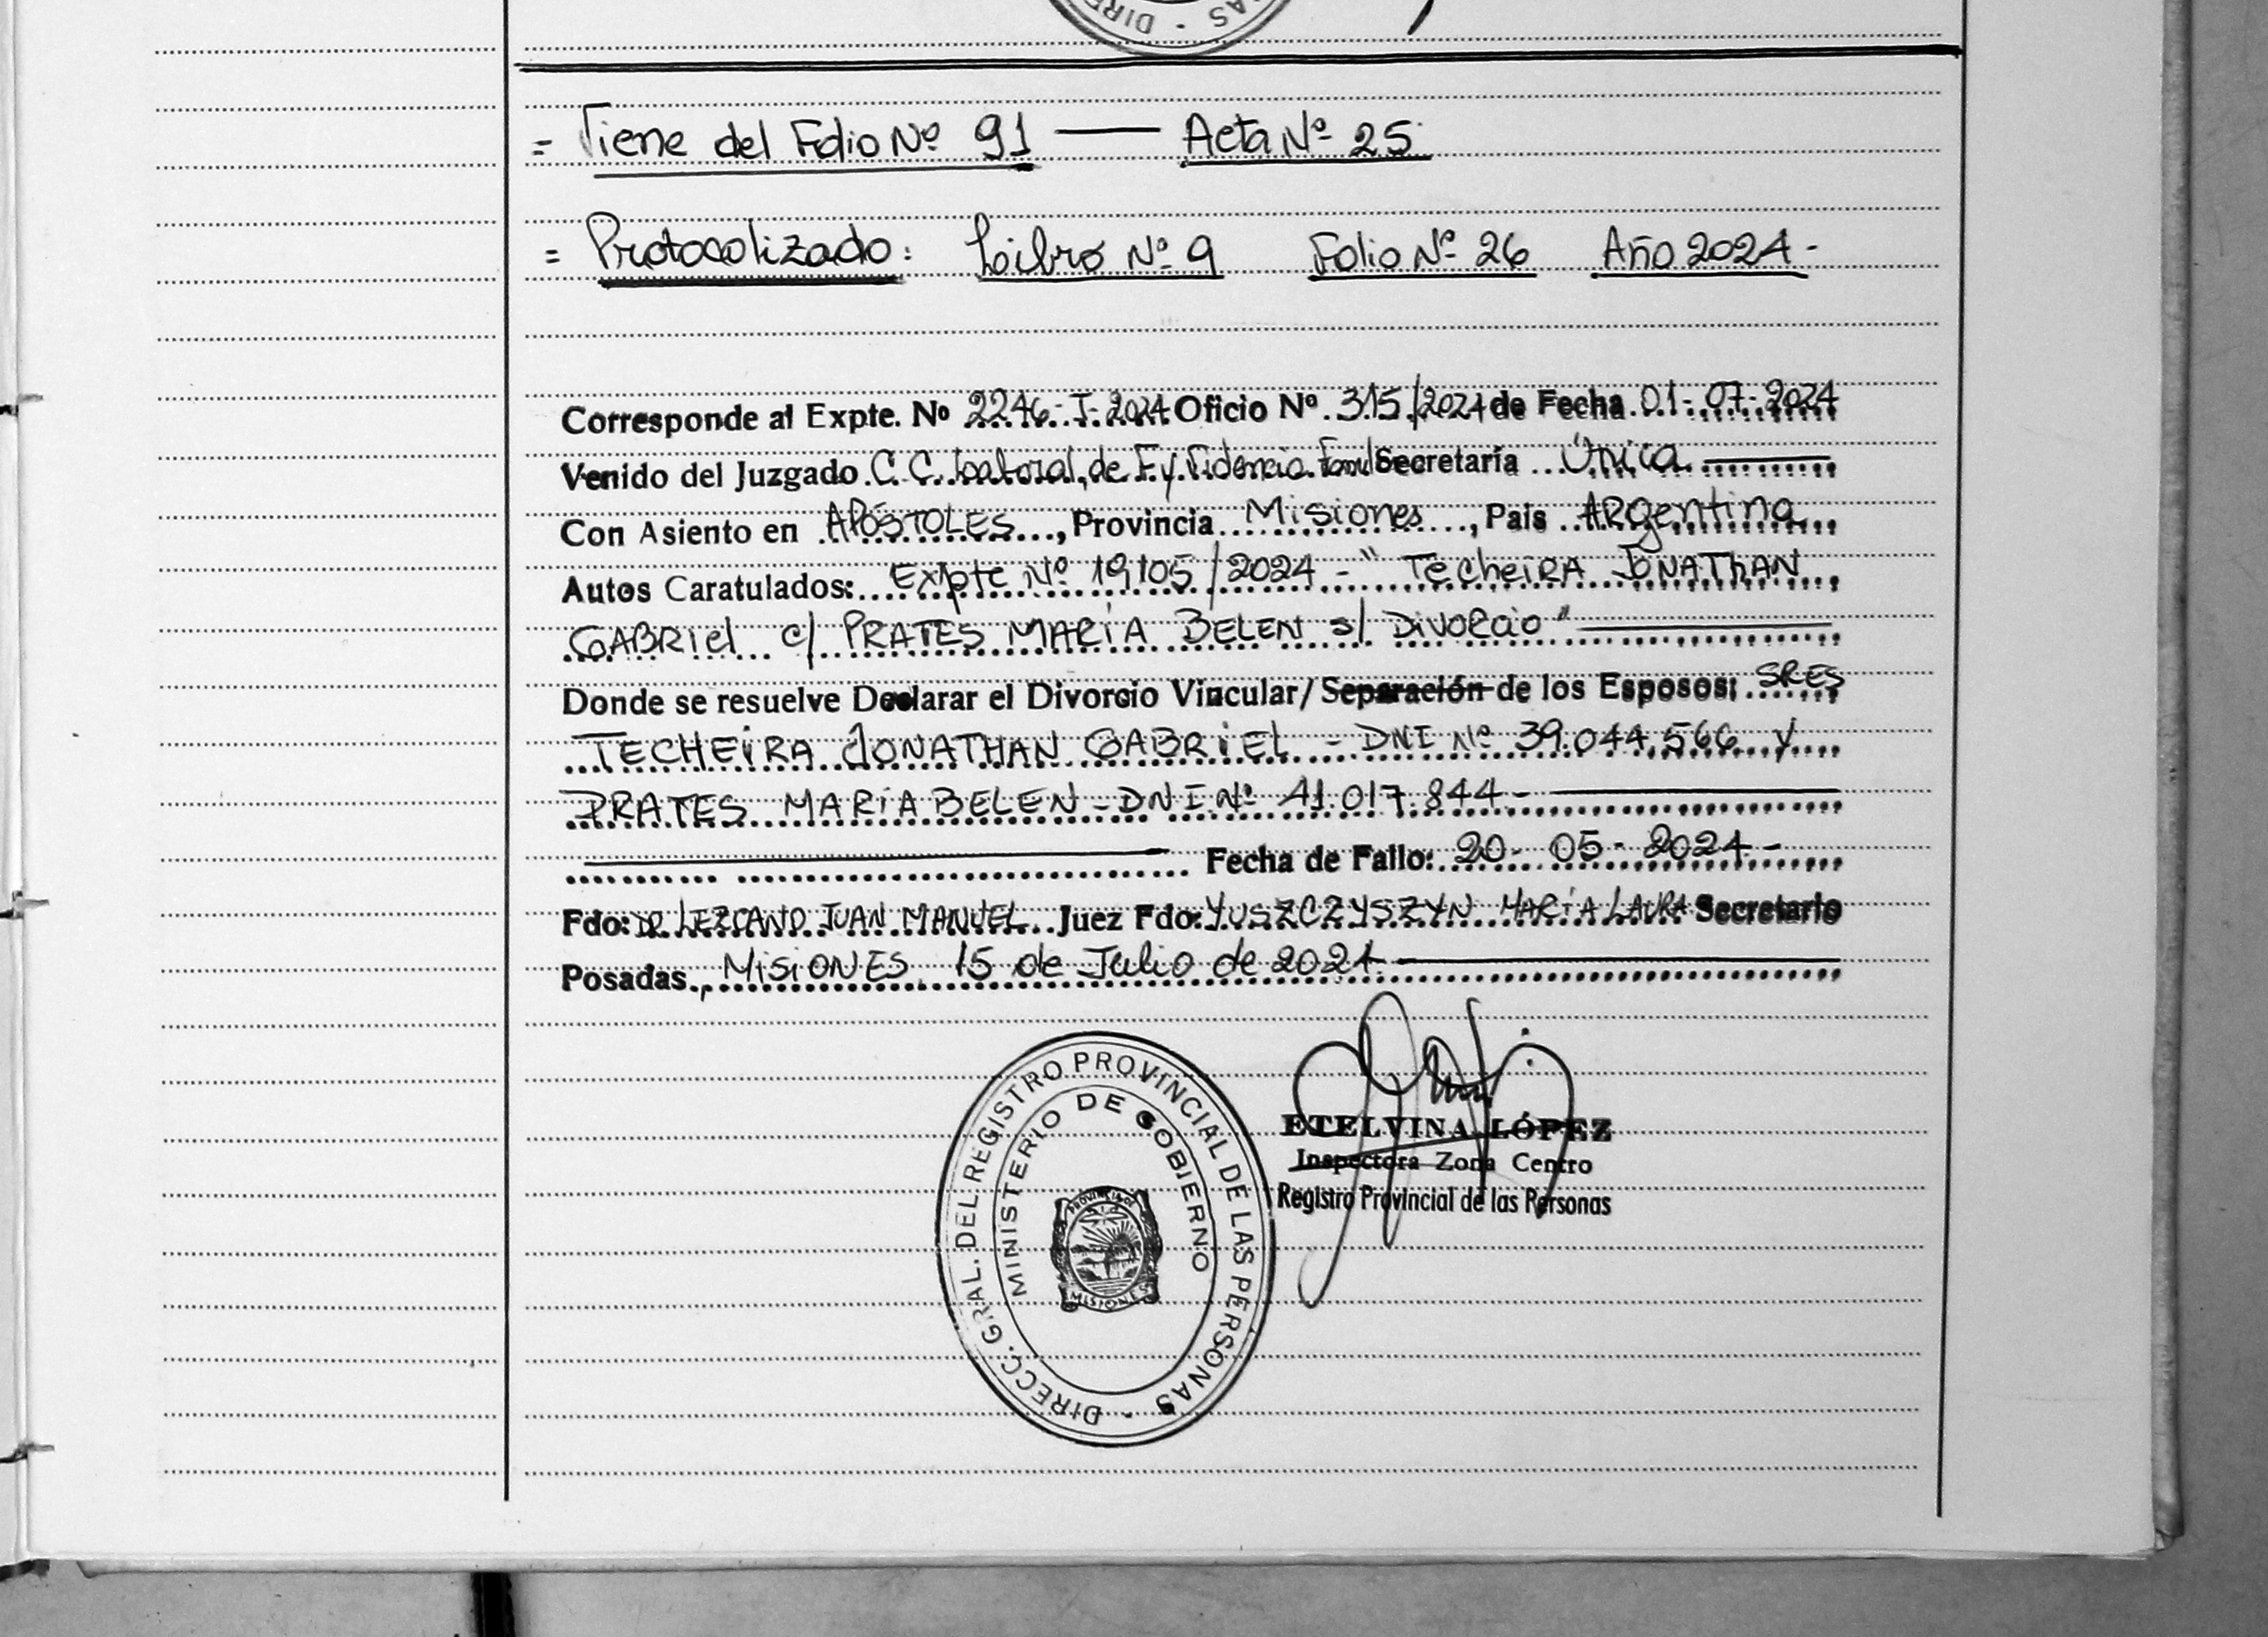 DIRE - AS
= Viene del Folio Nº 91 — Acta Nº 25.
= Protocolizado: Libro Nº 9 Folio Nº 26 Año 2024-
Corresponde al Expte. Nº 2246-I-2024 Oficio Nº 315/2024 de Fecha 01-07-2024
Venido del Juzgado C.C. Laboral, de F. y Videncia Famil Secretaría Única
Con Asiento en APÓSTOLES, Provincia Misiones, País ARgentina,
Autos Caratulados: Expte Nº 19105/2024 - "TecheiRA JONAThAN
GABRiel c/ PRATES MARÍA BELEN s/ DivORcio"
Donde se resuelve Declarar el Divorcio Vincular/Separación de los Esposos: SRES
TECHEiRA JONATHAN GABRiEL - DNI Nº 39.044.566 y
PRATES MARÍA BELEN - DNI Nº 41.017.844-
Fecha de Fallo: 20-05-2024-
Fdo: DR LEZCANO JUAN MANUEL Juez Fdo: YUSZCZYSZYN MARÍA LAURA Secretario
Posadas, MisiONES 15 de Julio de 2024
DIRECC. GRAL. DEL REGISTRO PROVINCIAL DE LAS PERSONAS -
MINISTERIO DE GOBIERNO
PROVINCIA DE
MISIONES
ETELVINA LÓPEZ
Inspectora Zona Centro
Registro Provincial de las Personas